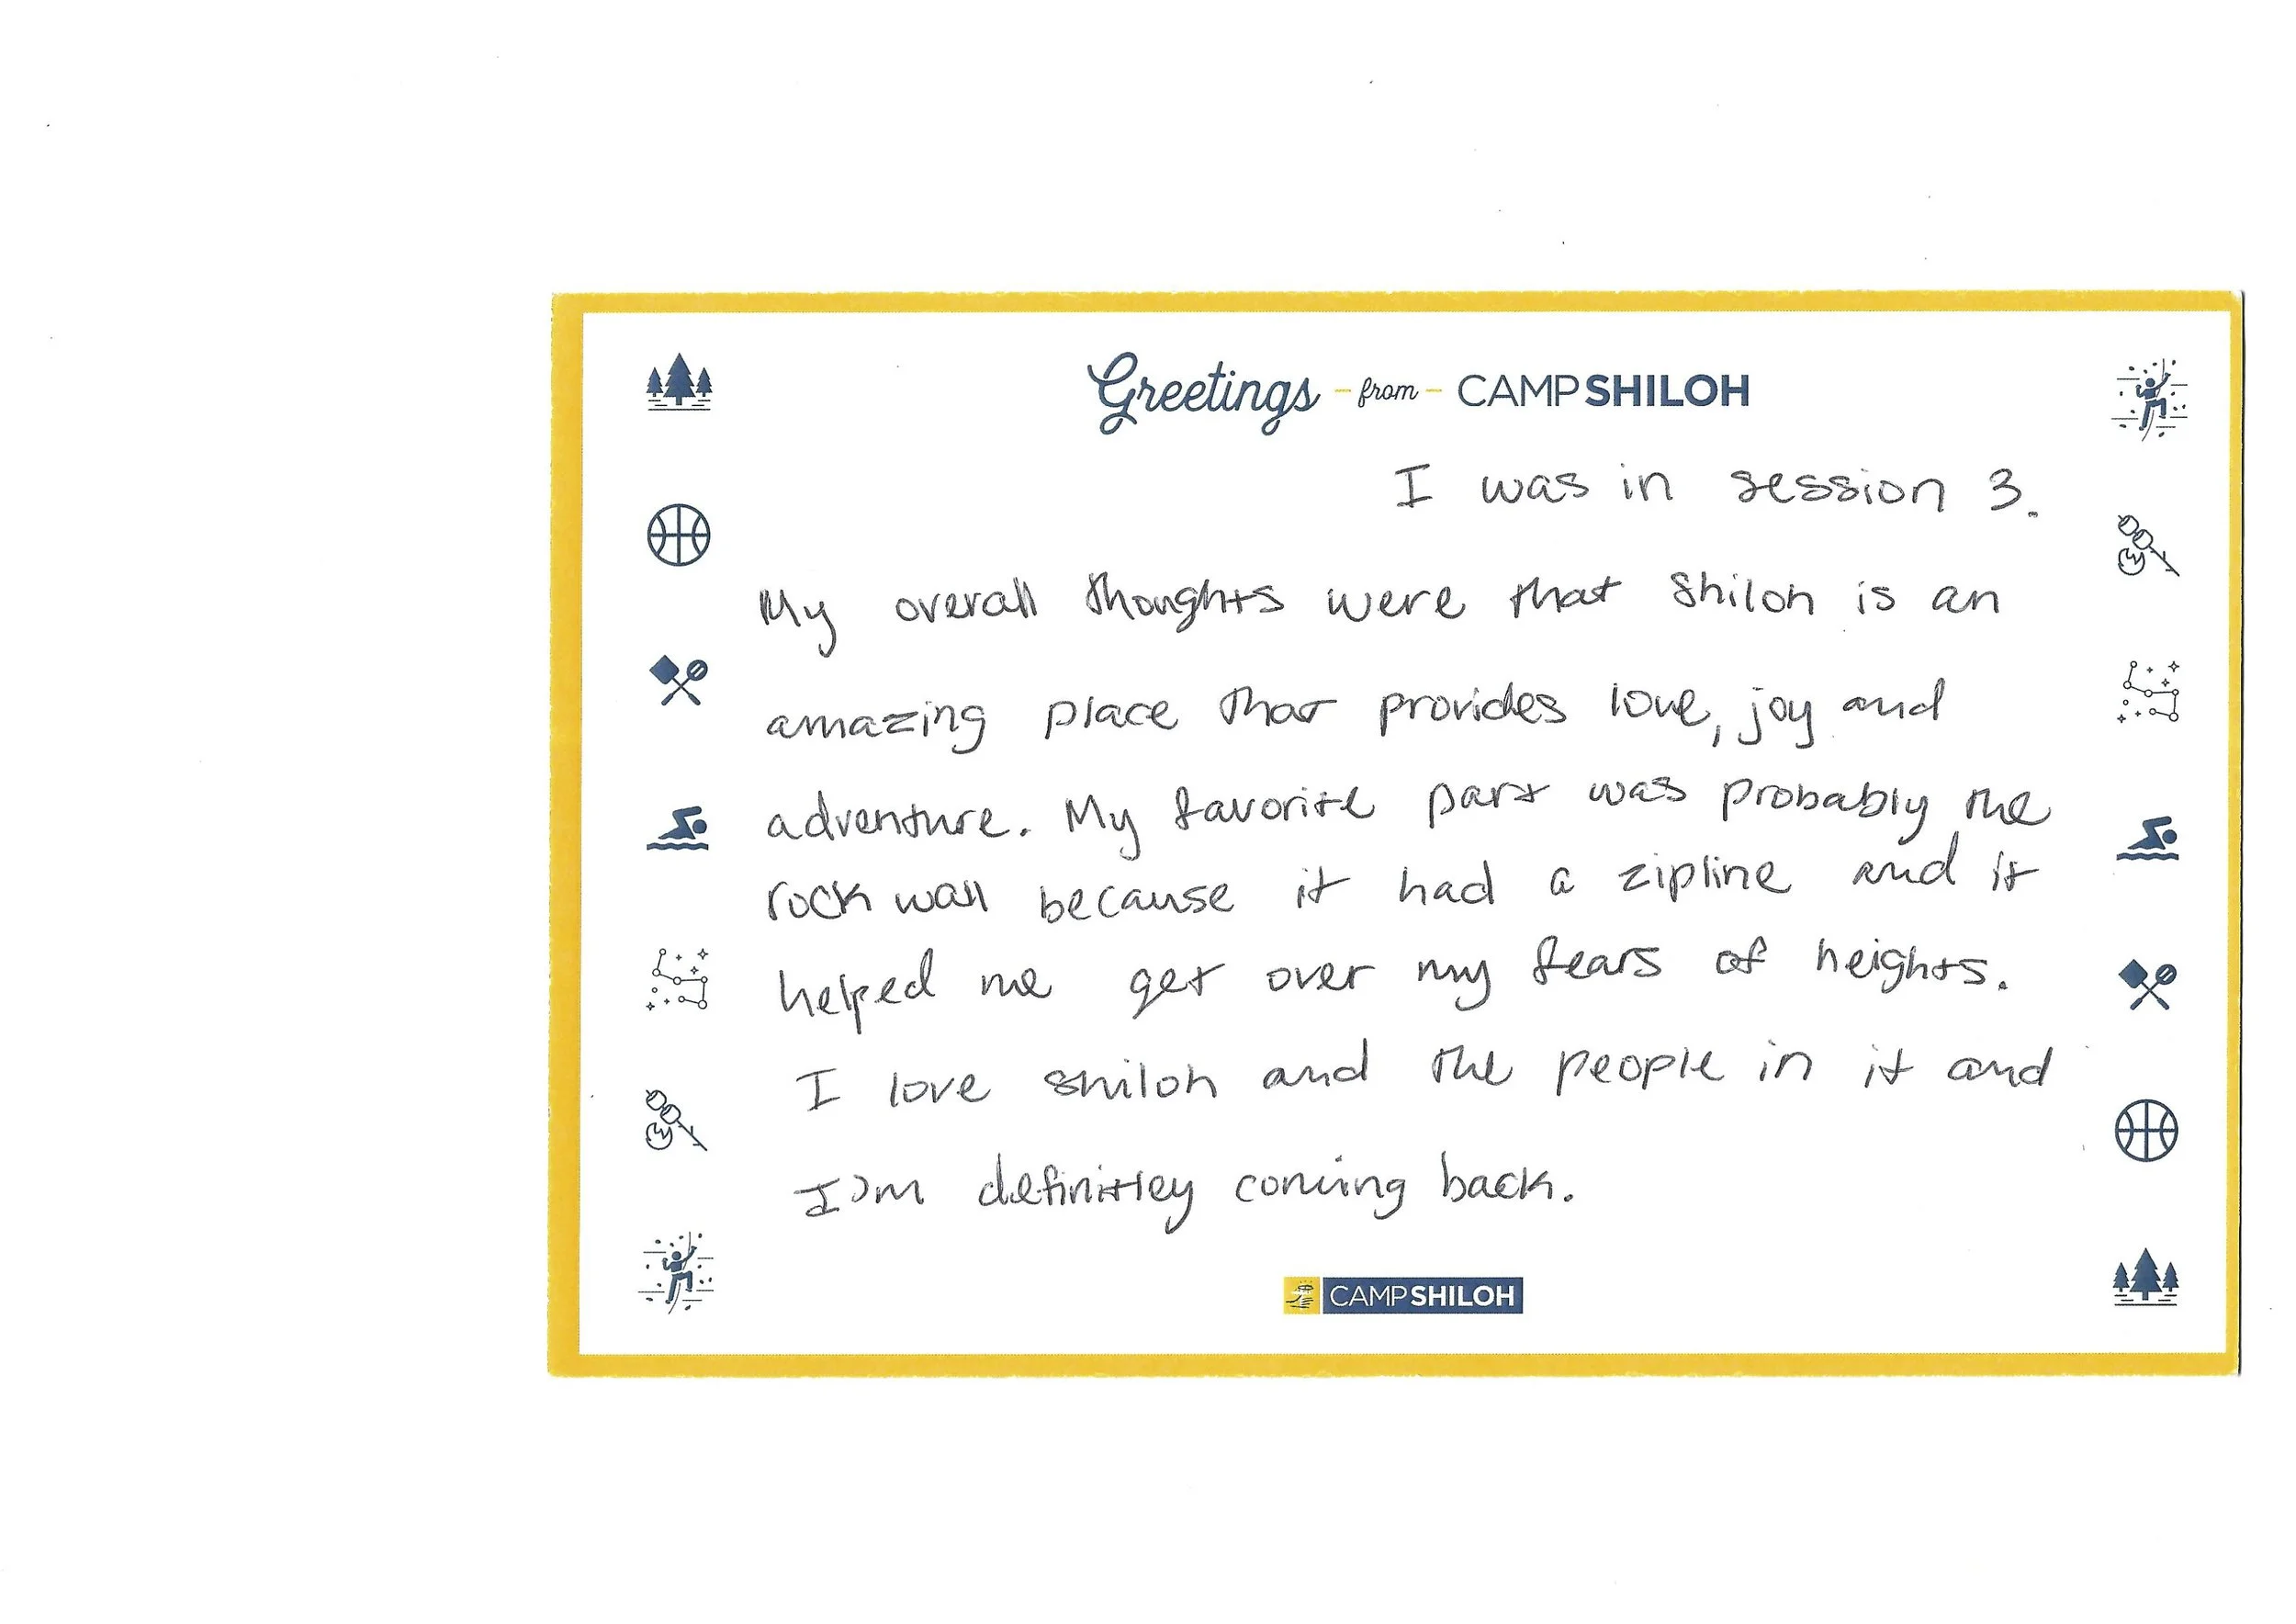 Greetings - from - CAMP SHILOH
I was in session 3.
My overall thoughts were that Shiloh is an
amazing place that provides love, joy and
adventure. My favorite part was probably the
rock wall because it had a zipline and it
helped me get over my fears of heights.
I love shiloh and the people in it and
I'm definitley coming back.
CAMP SHILOH